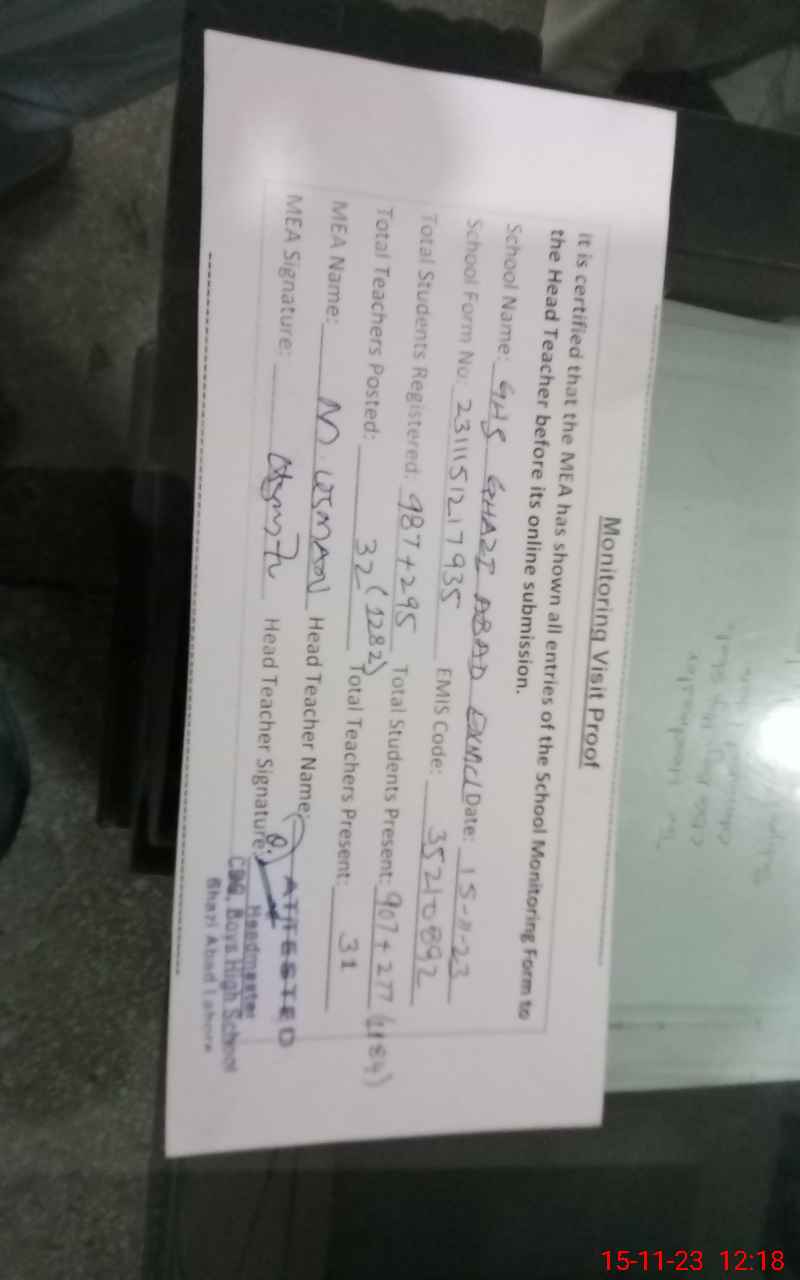 Monitoring Visit Proof
It is certified that the MEA has shown all entries of the School Monitoring Form to
the Head Teacher before its online submission.
School Name: GHS GHAZI ABAD Date: 15-11-23
School Form No: 231115121 7935 EMIS Code: 35210892
Total Students Registered: 987+295 (1282) Total Students Present: 907+277 (1184)
Total Teachers Posted: 32 Total Teachers Present: 31
MEA Name: M. USMAN Head Teacher Name:
MEA Signature: Head Teacher Signature:
ATTESTED
Headmaster
Boys High School
Ghazi Abad Lahore
15-11-23 12:18